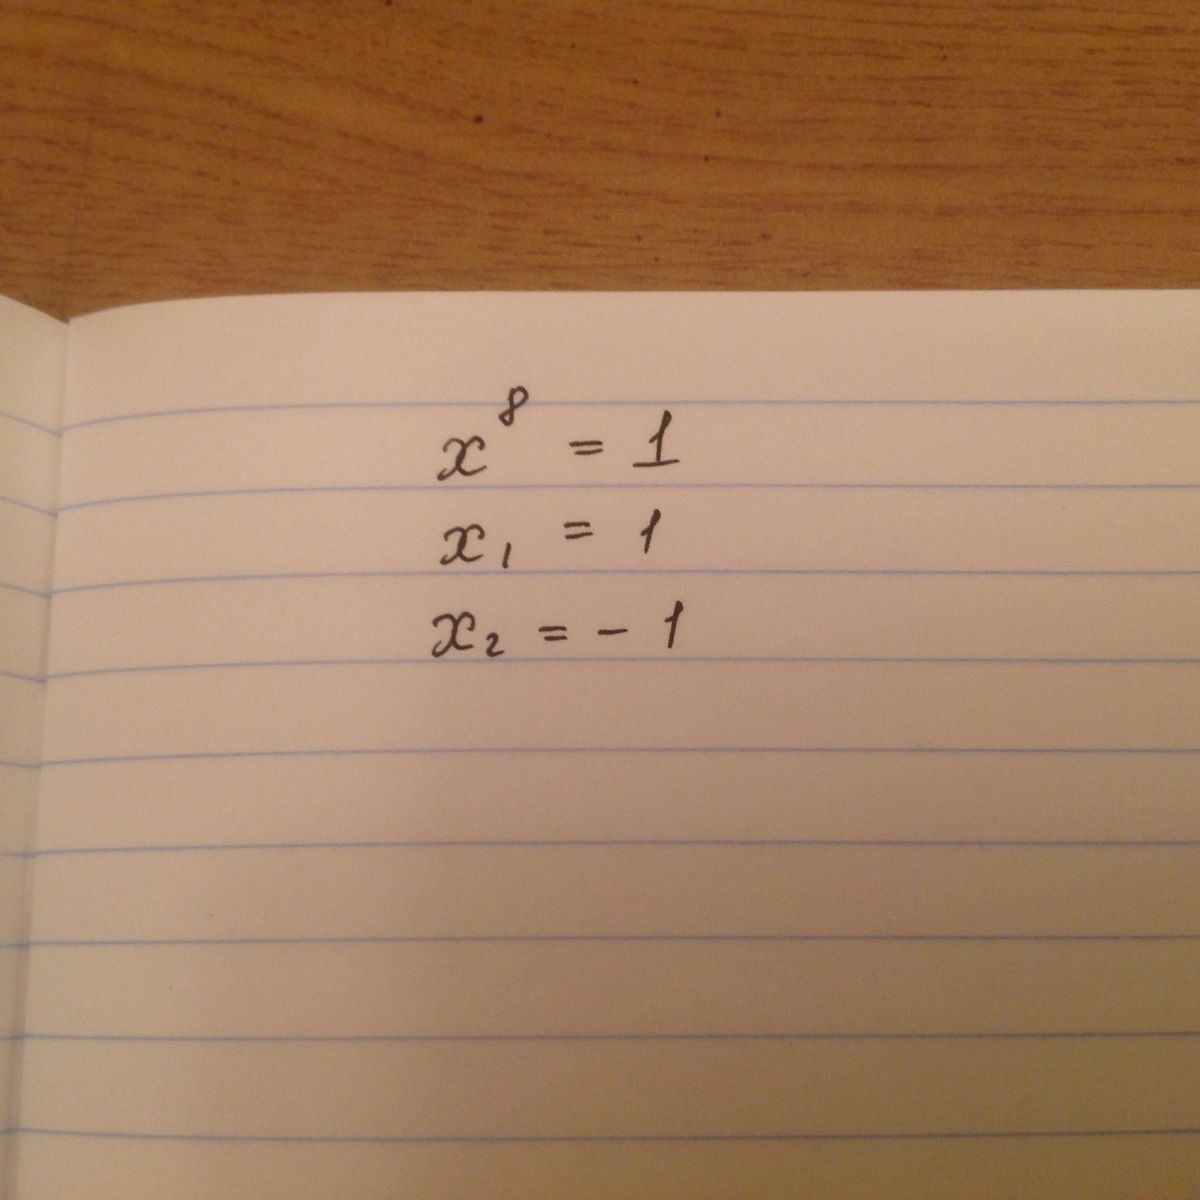 x⁸ = 1
x₁ = 1
x₂ = - 1